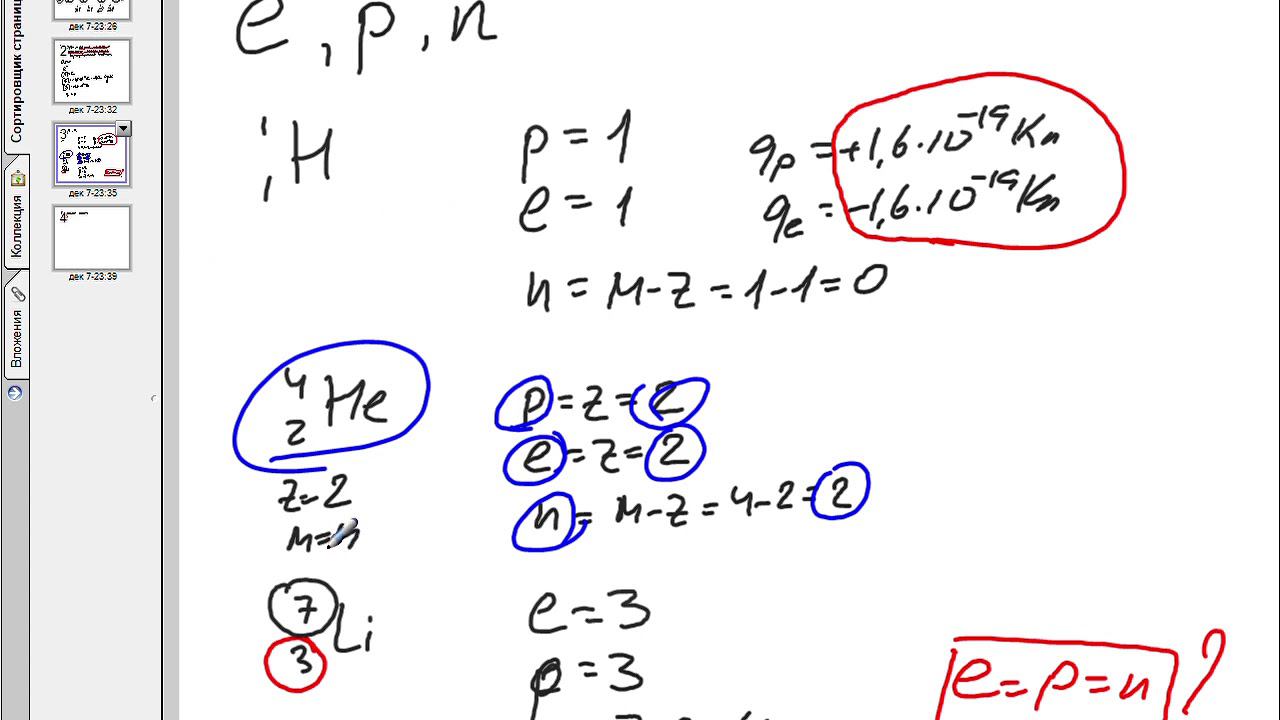 Сортировщик страниц
Коллекция
Вложения
дек 7-23:26
2
дек 7-23:32
3
дек 7-23:35
4
дек 7-23:39
e, p, n
¹₁H
p = 1
e = 1
n = M-Z = 1-1 = 0
qp = +1,6·10⁻¹⁹ Кл
qe = -1,6·10⁻¹⁹ Кл
⁴₂He
Z=2
M=4
p = Z = 2
e = Z = 2
n = M-Z = 4-2 = 2
⁷₃Li
e = 3
p = 3
e = p = n ?